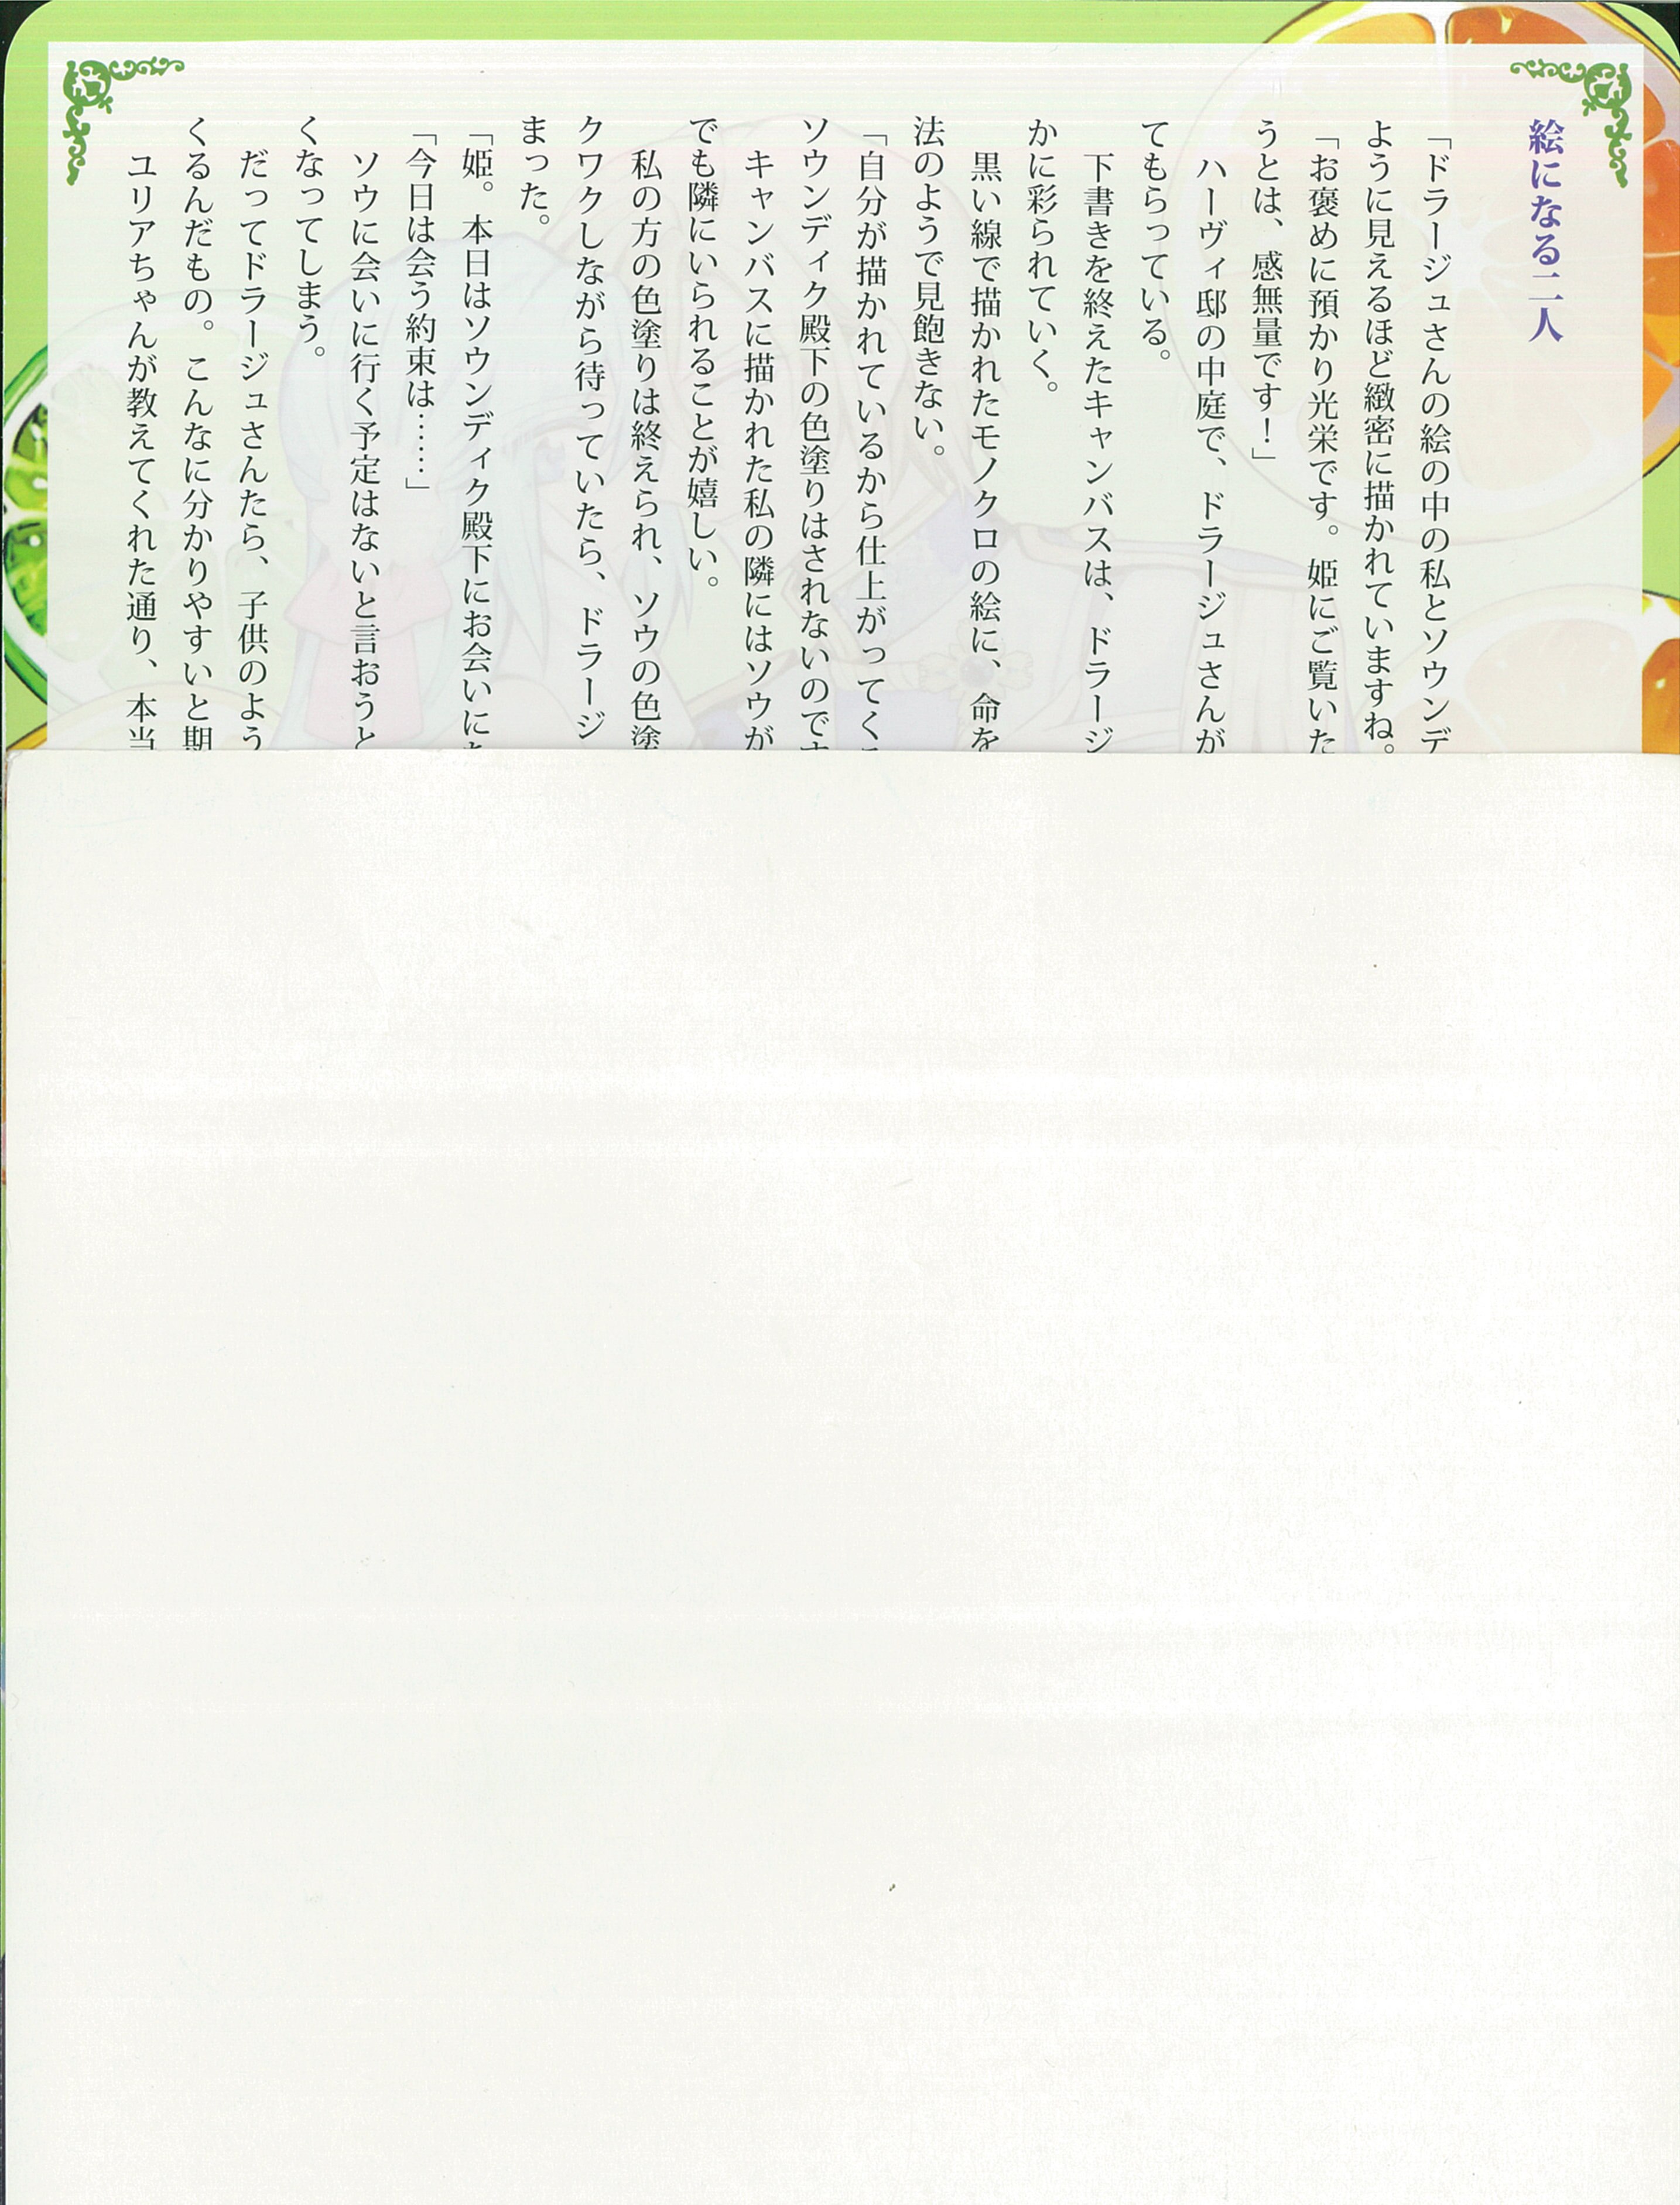 絵になる二人
「ドラージュさんの絵の中の私とソウンデ
ように見えるほど緻密に描かれていますね。
「お褒めに預かり光栄です。姫にご覧いた
うとは、感無量です！」
ハーヴィ邸の中庭で、ドラージュさんが
てもらっている。
下書きを終えたキャンバスは、ドラージ
かに彩られていく。
黒い線で描かれたモノクロの絵に、命を
法のようで見飽きない。
「自分が描かれているから仕上がってく
ソウンディク殿下の色塗りはされないので
キャンバスに描かれた私の隣にはソウが
でも隣にいられることが嬉しい。
私の方の色塗りは終えられ、ソウの色塗
クワクしながら待っていたら、ドラージ
まった。
「姫。本日はソウンディク殿下にお会いに
「今日は会う約束は……」
ソウに会いに行く予定はないと言おうと
くなってしまう。
だってドラージュさんたら、子供のよう
くるんだもの。こんなに分かりやすいと期
ユリアちゃんが教えてくれた通り、本当